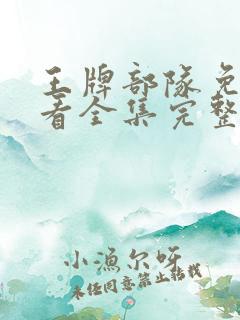 王牌部队免
看全集完整
小渔尔呀
未经同意禁止转载